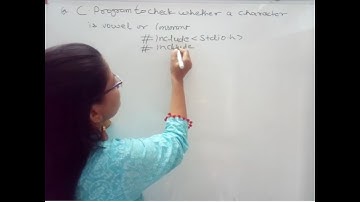 C Program to check whether a character
is vowel or
#include <stdio.h>
#include